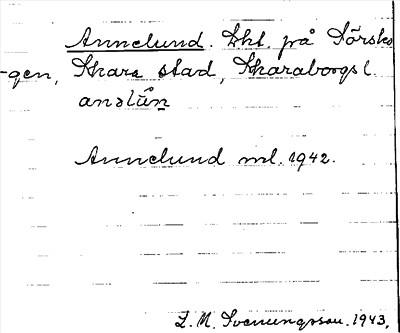 Annelund. Lht. på Törsko
-gen, Skara stad, Skaraborgs l.
anslūn
Annelund ml. 1942.
L. M. Svenungsson. 1943.